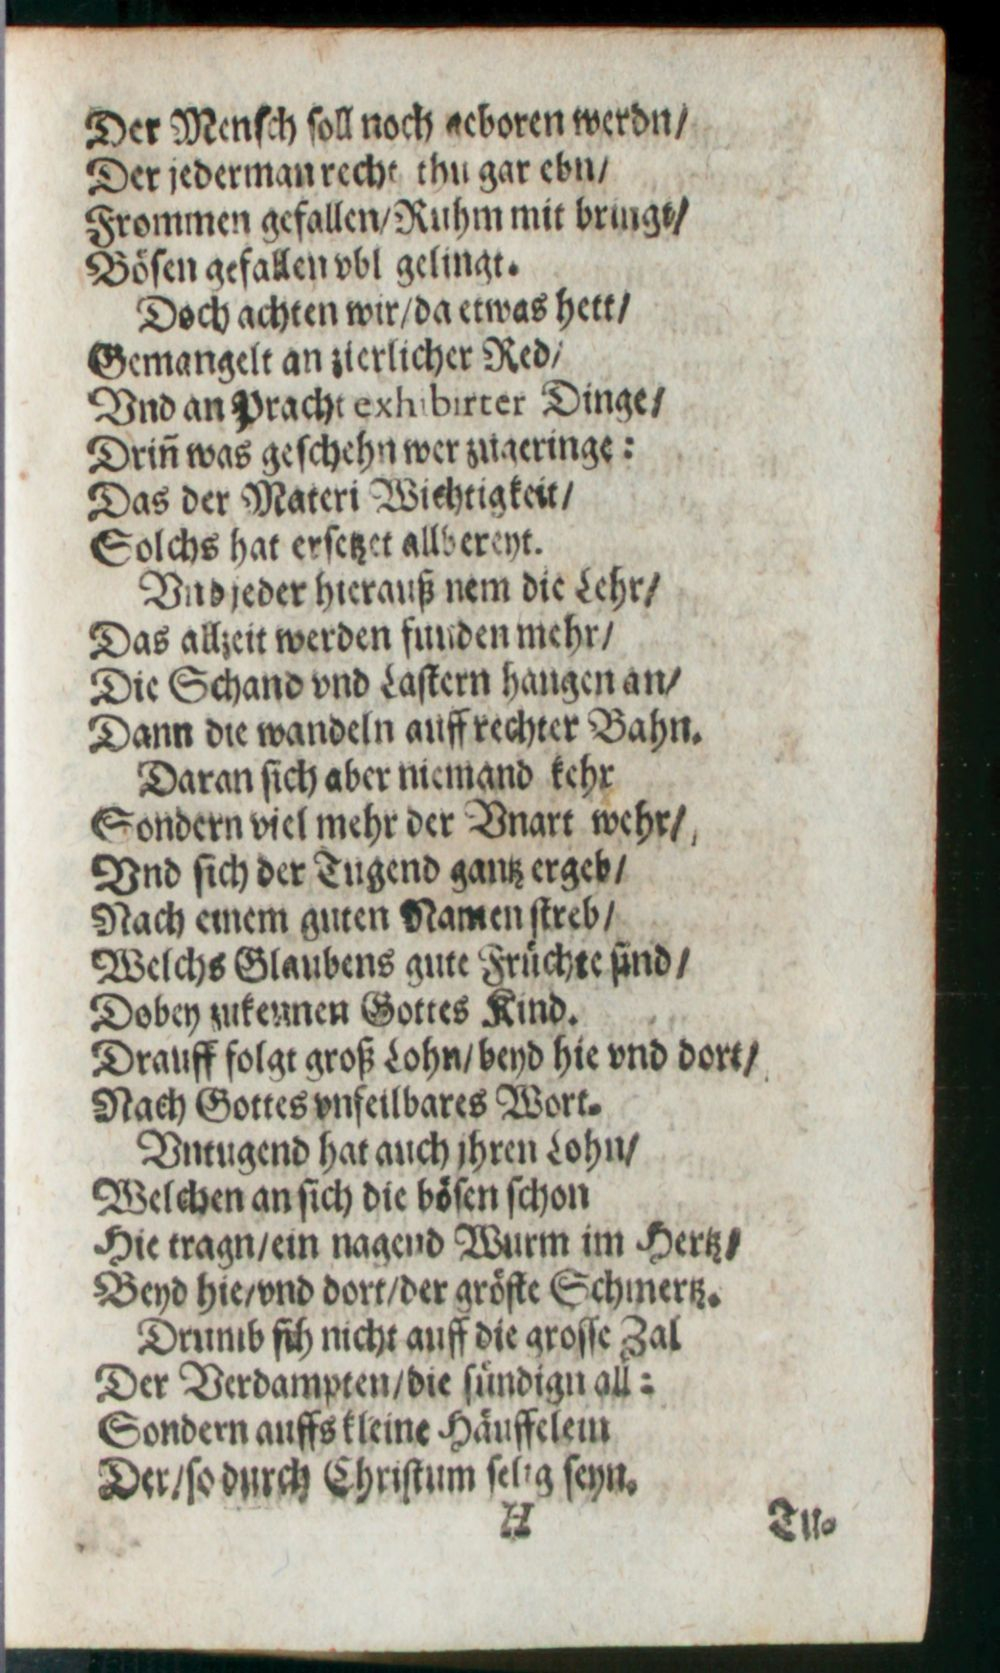 Der Mensch soll noch geboren werdn/
Der jederman recht thu gar ebn/
Frommen gefallen/Ruhm mit bringt/
Bösen gefallen vbl gelingt.
Doch achten wir/da etwas hett/
Gemangelt an zierlicher Red/
Vnd an Pracht exhibirter Dinge/
Driñ was geschehn wer zugeringe:
Das der Materi Wichtigkeit/
Solchs hat ersetzet allbereyt.
Vnd jeder hierauß nem die Lehr/
Das allzeit werden funden mehr/
Die Schand vnd Lastern hangen an/
Dann die wandeln auff rechter Bahn.
Daran sich aber niemand kehr
Sondern viel mehr der Vnart wehr/
Vnd sich der Tugend gantz ergeb/
Nach einem guten Namen streb/
Welchs Glaubens gute Früchte sind/
Dobey zukennen Gottes Kind.
Drauff folgt groß Lohn/beyd hie vnd dort/
Nach Gottes vnfeilbares Wort.
Vntugend hat auch jhren Lohn/
Welchen an sich die bösen schon
Hie tragn/ein nagend Wurm im Hertz/
Beyd hie/vnd dort/der gröste Schmertz.
Drumb sih nicht auff die grosse Zal
Der Verdampten/die sündign all:
Sondern auffs kleine Häuffelein
Der/so durch Christum selig seyn.
H Tu-